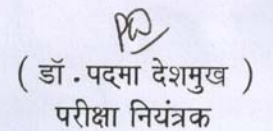 ( डॉ . पद्मा देशमुख )
परीक्षा नियंत्रक